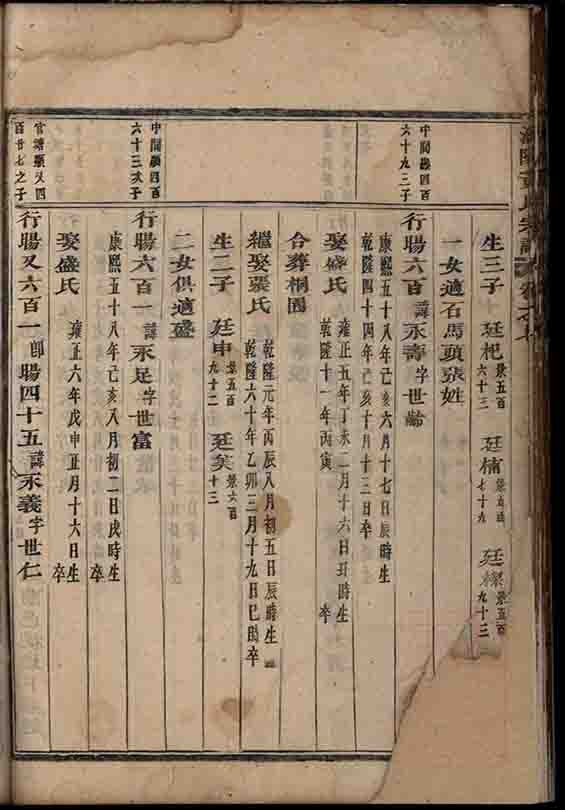 生三子 廷杞景五百六十三 廷楠景五百七十九 廷櫸景五百九十三
一女適石馬頭張姓
中開關四百六十九三子
行暘六百諱永壽字世齡
康熙五十八年己亥六月十七日辰時生
乾隆四十四年己亥十月十三日卒
娶盛氏
雍正五年丁未二月十六日丑時生
乾隆十一年丙寅 卒
合葬桐園
繼娶張氏
乾隆元年丙辰八月初五日辰時生
乾隆六十年乙卯三月十九日巳時卒
生二子 廷申景五百九十二 廷矣景六百十三
二女俱適盛
六十三次子
行暘六百一諱永足字世富
康熙五十八年己亥八月初二日戌時生
卒
娶盛氏
雍正六年戊申正月十六日生
卒
百廿七之子
行暘又六百一即暘四十五諱永義字世仁